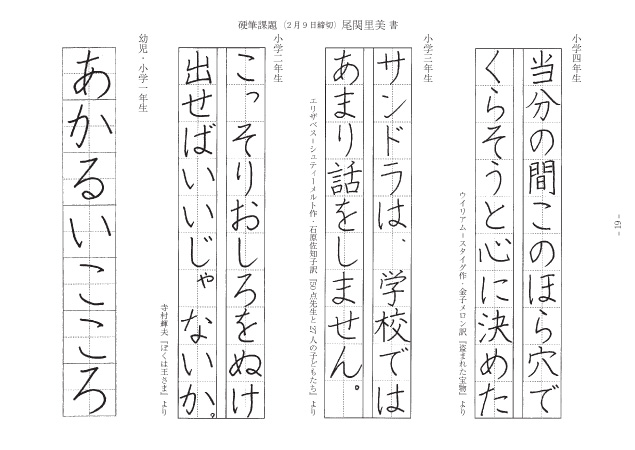 硬筆課題（2月9日締切）尾関里美 書
小学四年生
当分の間このほら穴で
くらそうと心に決めた
ウイリアム＝スタイグ作・金子メロン訳『盗まれた宝物』より
小学三年生
サンドラは、学校では
あまり話をしません。
エリザベス＝シュティーメルト作・石原佐知子訳『50点先生と27人の子どもたち』より
小学二年生
こっそりおしろをぬけ
出せばいいじゃないか。
寺村輝夫『ぼくは王さま』より
幼児・小学一年生
あかるいこころ
- 19 -